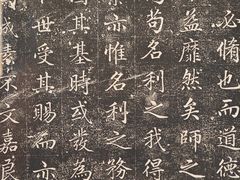 必脩也道德
益靡然矣師之
苟名利之我得
亦惟名利之務
其基時或發為
世受其賜而亦
成嘉禾文嘉良